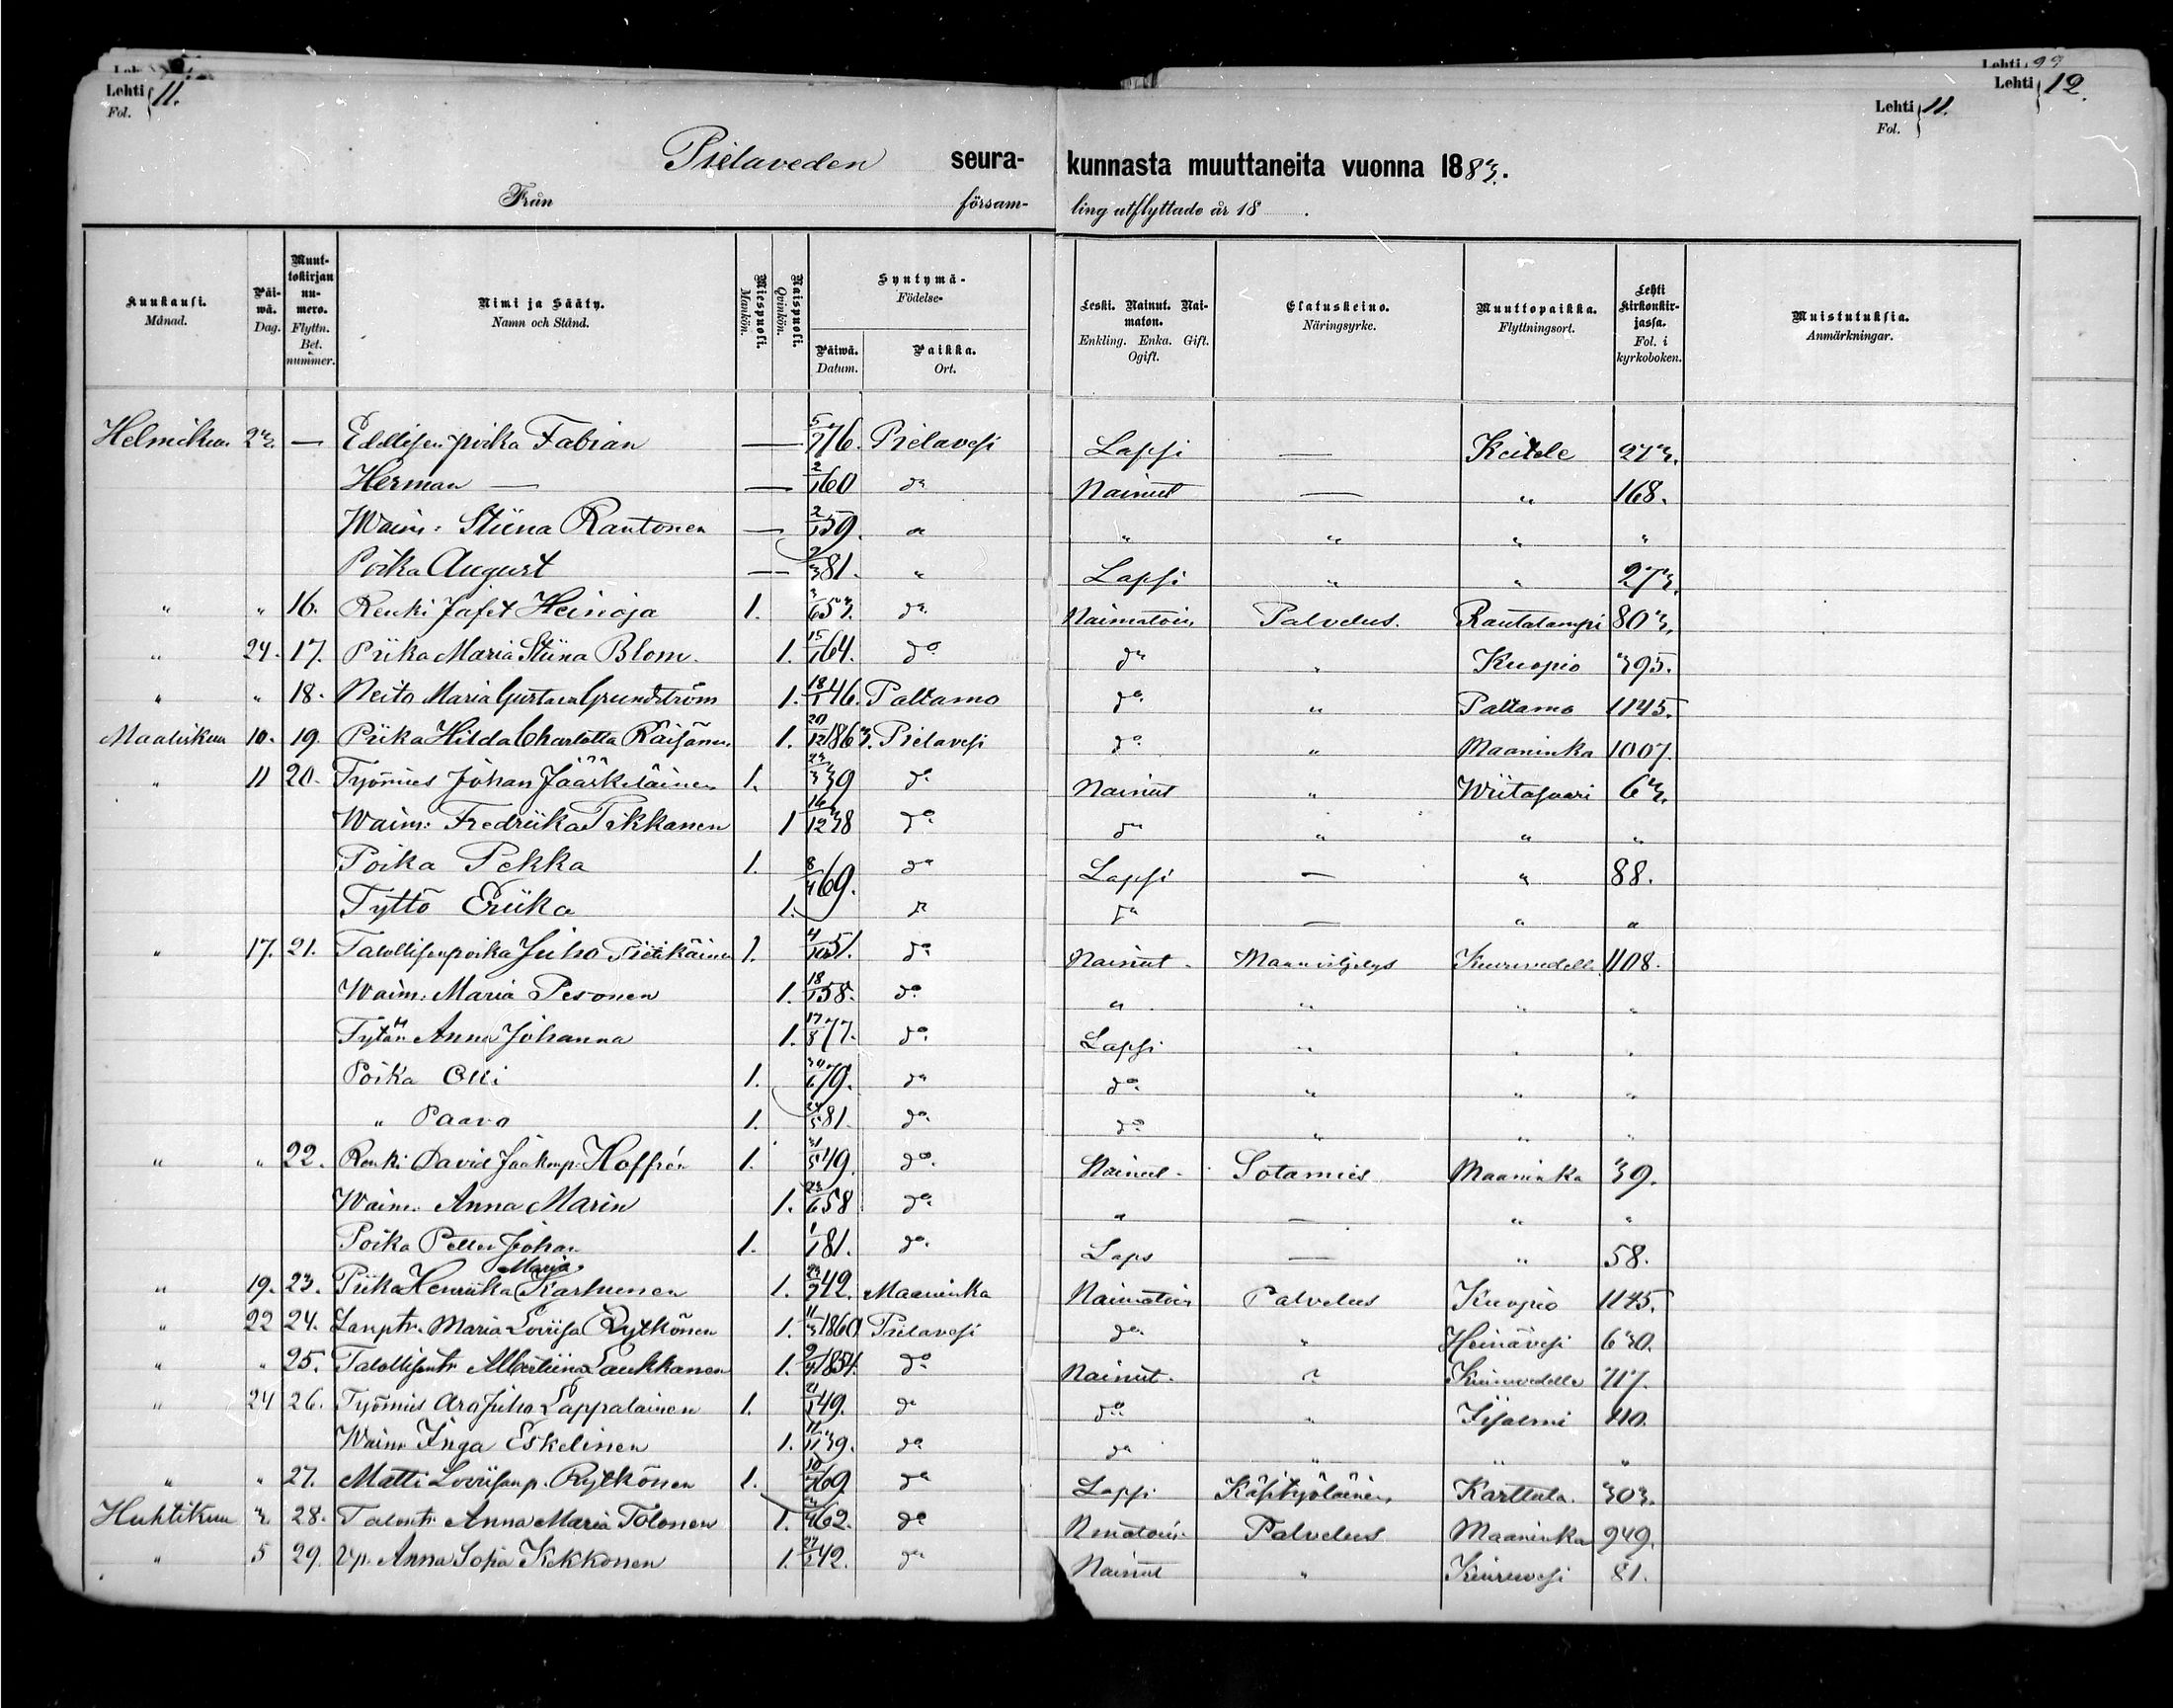 Lehti 11.
Fol.
Lehti 12.
Lehti 11.
Fol.
Pielaveden seura- kunnasta muuttaneita vuonna 1883.
Från försam- ling utflyttade år 18 .
Kuukausi. Månad.
Päi-wä. Dag.
Muut-tokirjan nu-mero. Flyttn. Bet. nummer.
Nimi ja Sääty. Namn och Stånd.
Miespuoli. Mankön.
Naispuoli. Qvinkön.
Syntymä- Födelse-
Päiwä. Datum.
Paikka. Ort.
Leski. Nainut. Nai-maton. Enkling. Enka. Gift. Ogift.
Elatuskeino. Näringsyrke.
Muuttopaikka. Flyttningsort.
Lehti Kirkonkir-jassa. Fol. i kyrkoboken.
Muistutuksia. Anmärkningar.
Helmikuu 23. — Edellisen poika Fabian — 76. Pielavesi Lapsi — Keitele 273.
Herman — — 2/1 60 do Nainut — " 168.
Waim: Stiina Rautonen — 2/1 59. " " " " "
Poika August — 2/3 81. " Lapsi " " 273.
" " 16. Renki Jafet Heinoja 1. 53. do Naimatoin Palvelus. Rautalampi 803.
" 24. 17. Piika Maria Stiina Blom. 1. 15/1 64. do do " Kuopio 395.
" " 18. Neito Maria Gustava Grundström 1. 18/1 46. Paltamo do " Paltamo 1145.
Maaliskuu 10. 19. Piika Hilda Charlotta Räisänen 1. 20/12 1863. Pielavesi do " Maaninka 1007.
" 11 20. Työmies Johan Jääskeläinen 1. 23/3 39 do Nainut " Wiitasaari 63.
Waim: Fredriika Pekkanen 1 16/12 38 do do " " "
Poika Pekka 1. 8/4 69. do Lapsi — " 88.
Tyttö Eriika 1. do do — " "
" 17. 21. Talollisenpoika Juho Pietikäinen 1. 4/10 51. do Nainut. Maanviljelys 1108.
Waim: Maria Pesonen 1. 18/1 58. do " " " "
Tytär Anna Johanna 1. 17/8 77. do Lapsi " " "
Poika Olli 1. 30/6 79. do do " " "
" Paavo 1. 24/5 81. do do " " "
" " 22. Renki David Jaakonp: Hoffrén 1. 31/5 49. do. Nainut. Sotamies Maaninka 39.
Waim: Anna Marin 1. 23/6 58 do " — " "
Poika Petter Johan 1. 1/1 81. do Laps — " 58.
" 19. 23. Piika Henriika Maria Karhunen 1. 42. Maaninka Naimatoin Palvelus Kuopio 1145.
" 22 24. Lamptr. Maria Lovisa Rytkönen 1. 11/3 1860 Pielavesi do " Heinävesi 630.
" " 25. Talollisentr Albertiina Laukkanen 1. 1854. do Nainut. " 717.
" 24 26. Työmies Aro Juho Lappalainen 1. 21/1 49. do do " Iisalmi 410.
Waim Inga Eskelinen 1. 11/11 39. do do " " "
" " 27. Matti Loviisanp. Rytkönen 1. 69. do Lapsi Käsityöläinen Karttula. 303.
Huhtikuu 3. 28. Talontr. Anna Maria Tolonen 1. 62. do Nmatoin. Palvelus Maaninka 949.
" 5 29. Anna Sofia Kekkonen 1. 42. do Nainut " Kiuruvesi 81.